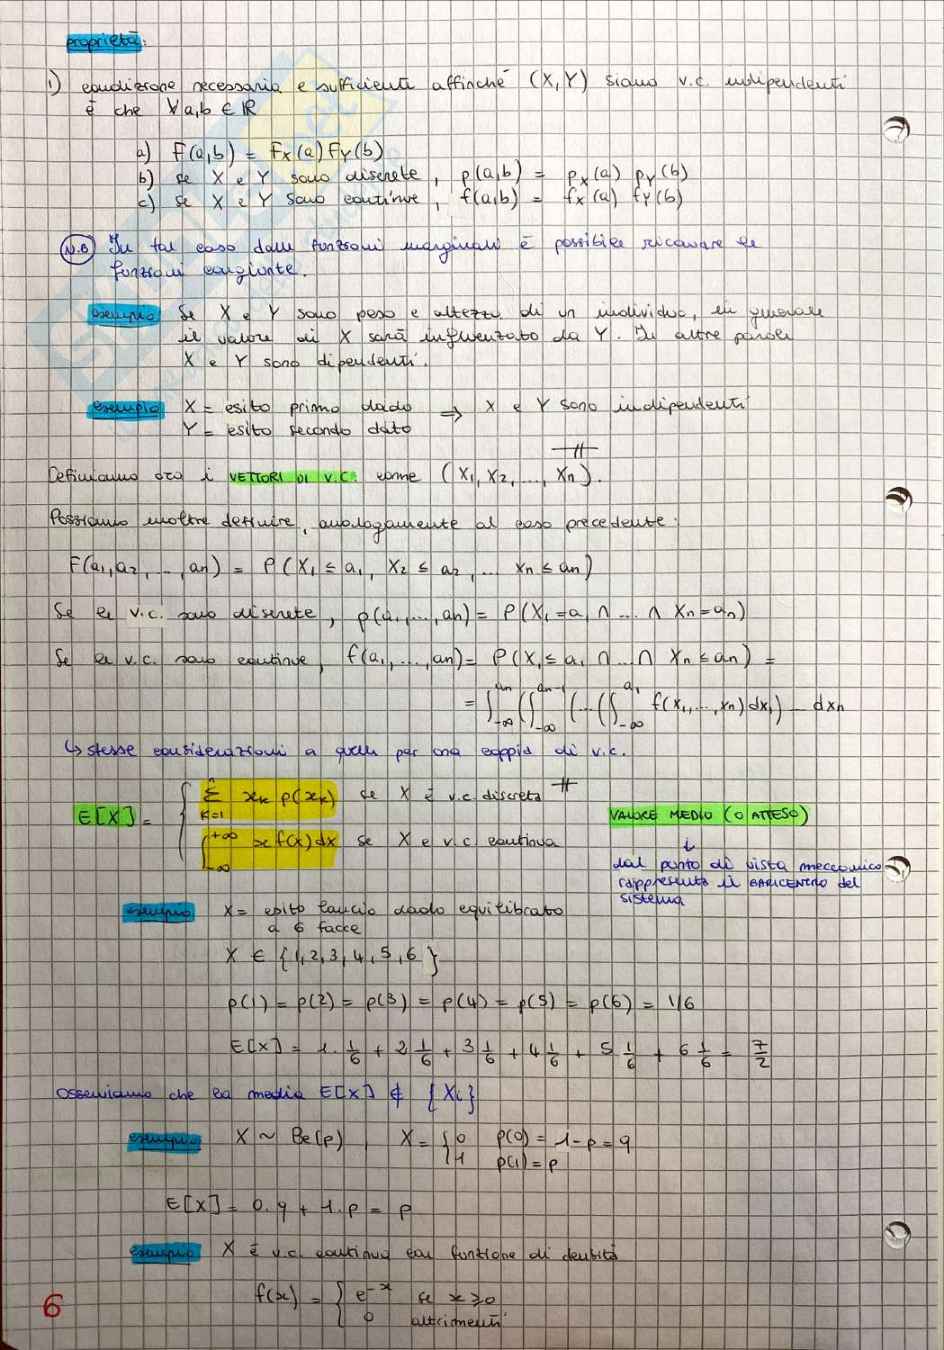 proprietà:
1) condizione necessaria e sufficiente affinché (X,Y) siano v.c. indipendenti
è che ∀a,b ∈ ℝ
a) F(a,b) = Fx(a) Fy(b)
b) se X e Y sono discrete, p(a,b) = px(a) py(b)
c) se X e Y sono continue, f(a,b) = fx(a) fy(b)
N.B In tal caso dalle funzioni marginali è possibile ricavare le
funzioni congiunte.
esempio Se X e Y sono peso e altezza di un individuo, in generale
il valore di X sarà influenzato da Y. In altre parole
X e Y sono dipendenti.
esempio X = esito primo dado ⇒ X e Y sono indipendenti
Y = esito secondo dato
Definiamo ora i VETTORI DI V.C. come (X1, X2, ..., Xn).
Possiamo inoltre definire, analogamente al caso precedente:
F(a1,a2, ..., an) = P(X1 ≤ a1, X2 ≤ a2, ... Xn ≤ an)
Se le v.c. sono discrete, p(a1,...,an) = P(X1=a1 ∩ ... ∩ Xn=an)
Se le v.c. sono continue, f(a1,...,an) = P(X1 ≤ a1 ∩ ... ∩ Xn ≤ an) =
= ∫-∞^an (∫-∞^an-1 (...(∫-∞^a1 f(x1,...,xn)dx1)... dxn
↳ stesse considerazioni a quelle per una coppia di v.c.
E[X] = { Σ k=1 n xk p(xk) se X è v.c discreta
∫-∞ +∞ x f(x)dx se X e v.c continua
VALORE MEDIO (O ATTESO)
↓
dal punto di vista meccanico
rappresenta il BARICENTRO del
sistema
esempio X = esito lancio dado equilibrato
a 6 facce
X ∈ {1,2,3,4,5,6}
p(1) = p(2) = p(3) = p(4) = p(5) = p(6) = 1/6
E[X] = 1·1/6 + 2 1/6 + 3 1/6 + 4 1/6 + 5 1/6 + 6 1/6 = 7/2
Osserviamo che la media E[X] ∉ {Xi}
esempio X ~ Be(p), X = {0 p(0) = 1-p = q
1 p(1) = p
E[X] = 0·q + 1·p = p
esempio X è v.c. continua con funzione di densità
f(x) = { e^-x se x ≥ 0
0 altrimenti
6